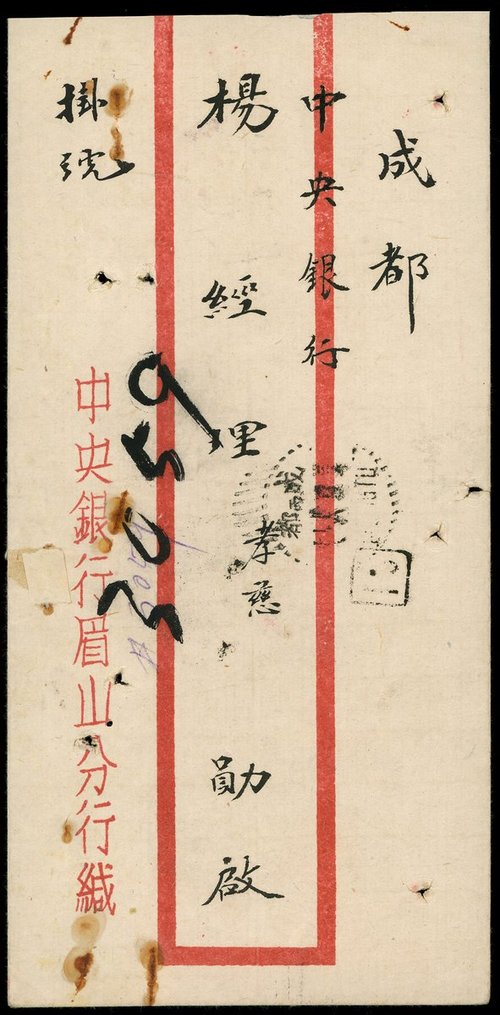 成都
中央銀行
楊經理孝慈勛啟
掛號
2059
中央銀行眉山分行緘